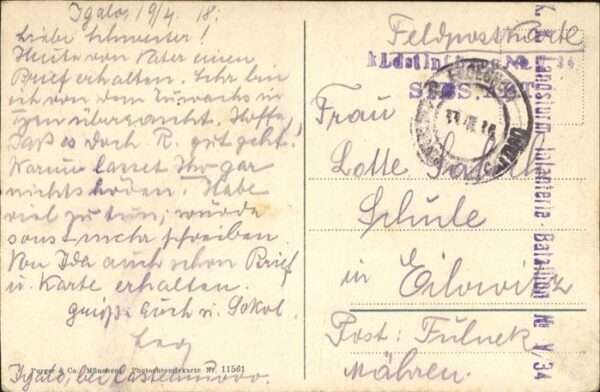 Igalo 19/4. 18.
Liebe Schwester!
Heute von Vater einen
Brief erhalten. Sehr bin
ich von dem Zuwachs in
überrascht. Hoffe,
daß es doch R. gut geht!
Warum lasset Ihr gar
nichts hören. Habe
viel zu tun, würde
sonst mehr schreiben
Von Ida auch schon Brief
u. Karte erhalten.
grüße Euch u. Sokol.
Igalo, bei Castelnuovo.
Purger & Co., München Photochromiekarte Nr. 11561
Feldpostkarte
Frau
Lotte
Schule
in Eilowitz
Post: Fulnek
Mähren.
k. k. Landsturm Infanterie Bataillon No